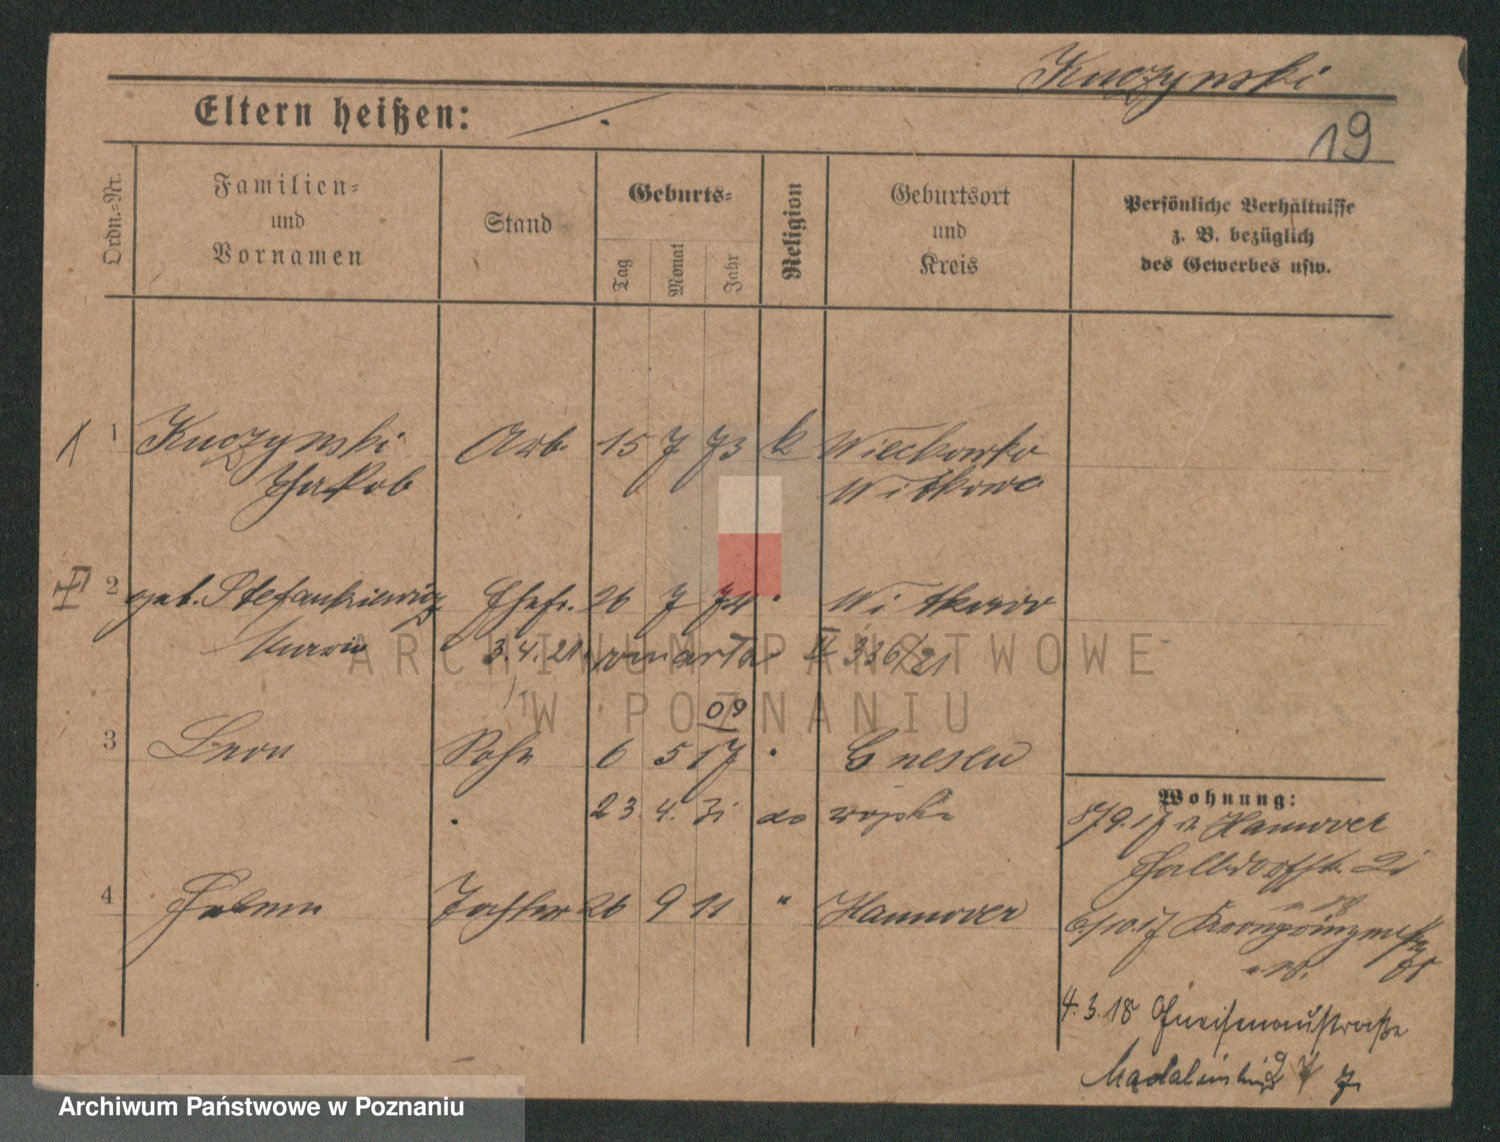 Kuczynski
Eltern heißen:
19
Ordn.-Nr.
Familien- und Vornamen
Stand
Geburts-
Tag
Monat
Jahr
Religion
Geburtsort und Kreis
Persönliche Verhältnisse z. B. bezüglich des Gewerbes usw.
I 1 Kuczynski Arb. 15 7 73 k Wieckowko
Jakob Witkowo
II 2 geb. Stefankiewicz Ehefr. 26 7 74 " Witkowo
Maria 3.4.21 umarła II 336/21
09
3 Leon Sohn 6 5 17 " Gnesen
23. 4. 31 do wojska
Wohnung:
8/9.17 v. Hannover
4 Helene Tochter 26 9 11 " Hannover
6/10.17 Kronprinzenstr.
4.3.18 Gneisenaustraße
Madalińskiego 7
ARCHIWUM PAŃSTWOWE
W POZNANIU
Archiwum Państwowe w Poznaniu